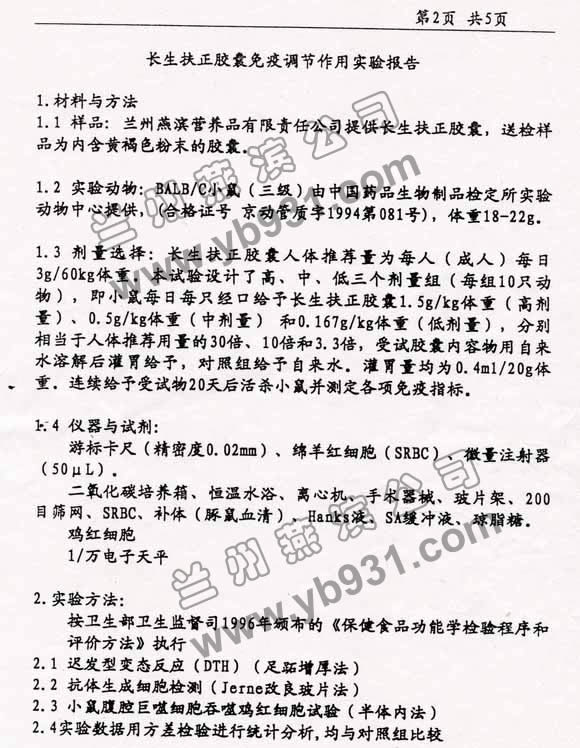 第2页 共5页
长生扶正胶囊免疫调节作用实验报告
1.材料与方法
1.1 样品: 兰州燕滨营养品有限责任公司提供长生扶正胶囊, 送检样
品为内含黄褐色粉末的胶囊。
1.2 实验动物: BALB/C小鼠 (三级) 由中国药品生物制品检定所实验
动物中心提供, (合格证号 京动管质字1994第081号), 体重18-22g。
1.3 剂量选择: 长生扶正胶囊人体推荐量为每人 (成人) 每日
3g/60kg体重。本试验设计了高、中、低三个剂量组 (每组10只动
物), 即小鼠每日每只经口给予长生扶正胶囊1.5g/kg体重 (高剂
量)、0.5g/kg体重 (中剂量) 和0.167g/kg体重 (低剂量), 分别
相当于人体推荐用量的30倍、10倍和3.3倍, 受试胶囊内容物用自来
水溶解后灌胃给予, 对照组给予自来水。灌胃量均为0.4ml/20g体
重。连续给予受试物20天后活杀小鼠并测定各项免疫指标。
1.4 仪器与试剂:
游标卡尺 (精密度0.02mm)、绵羊红细胞 (SRBC)、微量注射器
(50μL)。
二氧化碳培养箱、恒温水浴、离心机、手术器械、玻片架、200
目筛网、SRBC、补体 (豚鼠血清)、Hanks液、SA缓冲液、琼脂糖。
鸡红细胞
1/万电子天平
2.实验方法:
按卫生部卫生监督司1996年颁布的《保健食品功能学检验程序和
评价方法》执行
2.1 迟发型变态反应 (DTH) (足跖增厚法)
2.2 抗体生成细胞检测 (Jerne改良玻片法)
2.3 小鼠腹腔巨噬细胞吞噬鸡红细胞试验 (半体内法)
2.4实验数据用方差检验进行统计分析,均与对照组比较
兰州燕滨公司
www.yb931.com
兰州燕滨公司
www.yb931.com